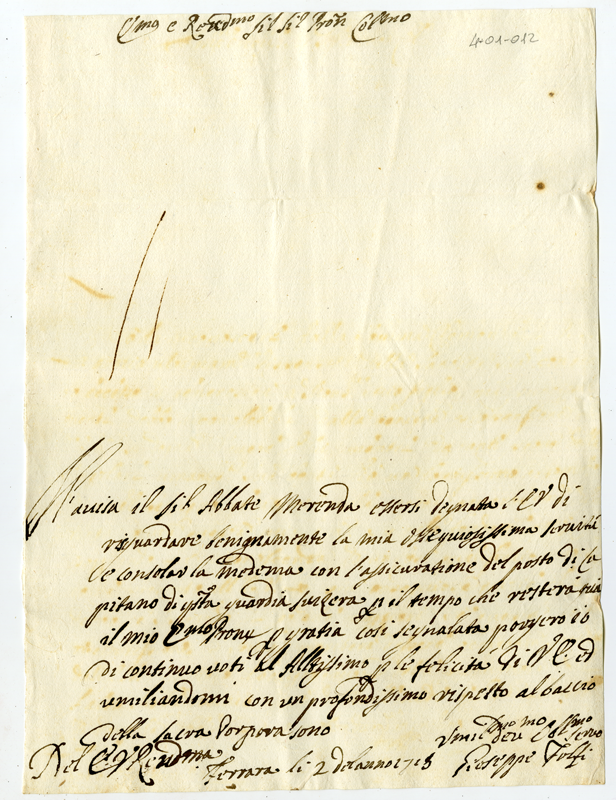 Em.o e Reud.mo Sig.r Sig.r Pron Col.mo
401-012
M'auisa il Sig.r Abbate Merenda essersi degnata l'E V di
risguardare benignamente la mia ossequiosissima seruitù
e consolar la medema con l'assicuratione del posto di Ca
pitano di q.sta guardia suizzera p il tempo che resterà
il mio Em.o Prone p gratia così segnalata porgerò io
di continuo voti all Altissimo p le felicità di V E ed
umiliandomi con un profondissimo rispetto al baccio
della sacra Porpora sono
Del E V Reud.ma
Ferrara li 2 del anno 1718
Umil.mo Deu.mo Obl.mo Seruo
Gioseppe Tolfi